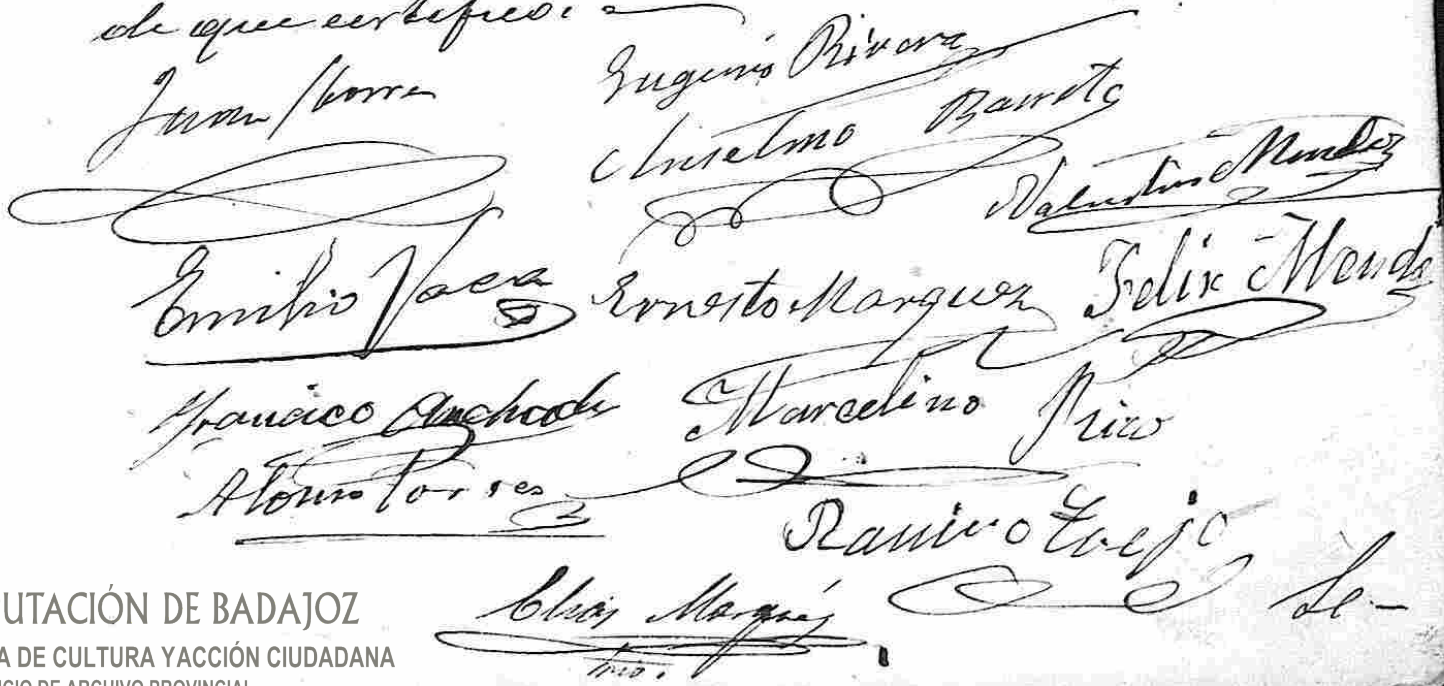 de que certifico:
Juan Eugenio Rivera
Anselmo Barreto
Valentin Mendez
Emilio Vaca Ernesto Marquez Felix Mende
Francisco Andrade Marcelino Rico
Alonso Torres
Ramiro Trejo
Elías Marqués Se-
Srio.
UTACIÓN DE BADAJOZ
A DE CULTURA YACCIÓN CIUDADANA
ICIO DE ARCHIVO PROVINCIAL